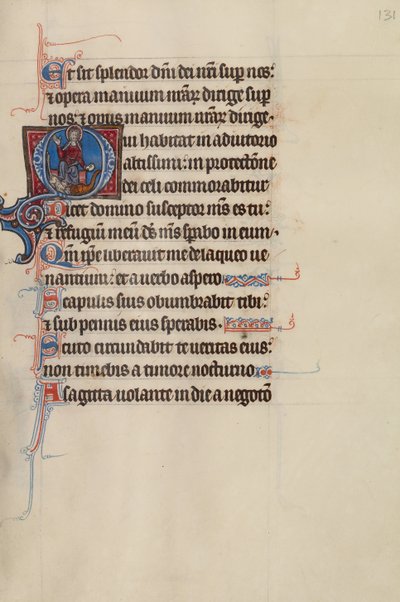 131
Et sit splendor dñi dei nr̃i sup̱ nos:
⁊ opera manuum nr̃aꝝ dirige sup̱
nos: ⁊ opus manuum nr̃aꝝ dirige.
Qui habitat in adiutorio
altissimi: in protectione
dei celi commorabitur
Dicet domino susceptor m̃s es tu:
⁊ refugiũ meũ dẽs m̃s sp̱abo in eum.
Qm̃ ip̃e liberauit me de laqueo ue
nantium: et a uerbo aspero
Scapulis suis obumbrabit tibi:
⁊ sub pennis eius sperabis.
Scuto circũdabit te ueritas eius:
non timebis a timore nocturno
A sagitta uolante in die a negotõ